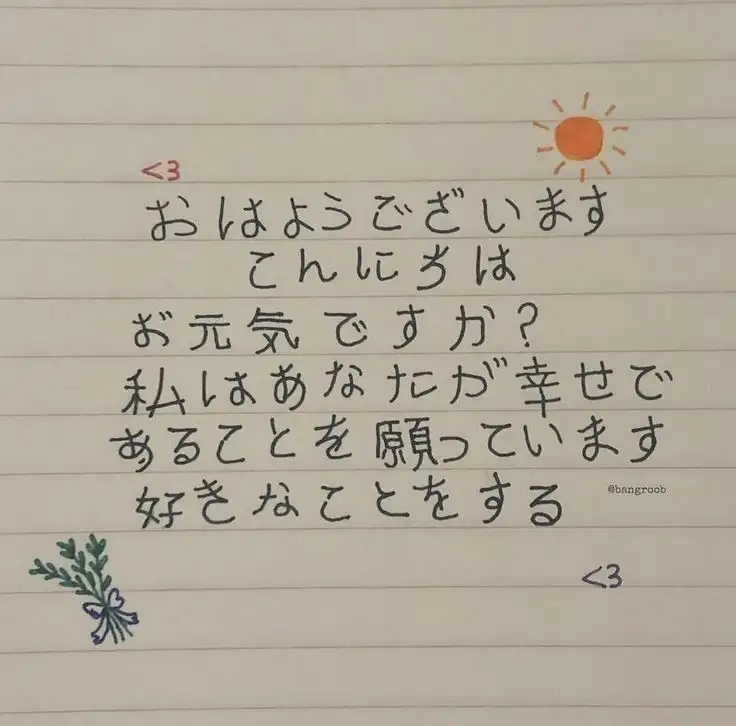 <3
おはようございます
こんにちは
お元気ですか?
私はあなたが幸せで
あることを願っています
好きなことをする
@bangroob
<3